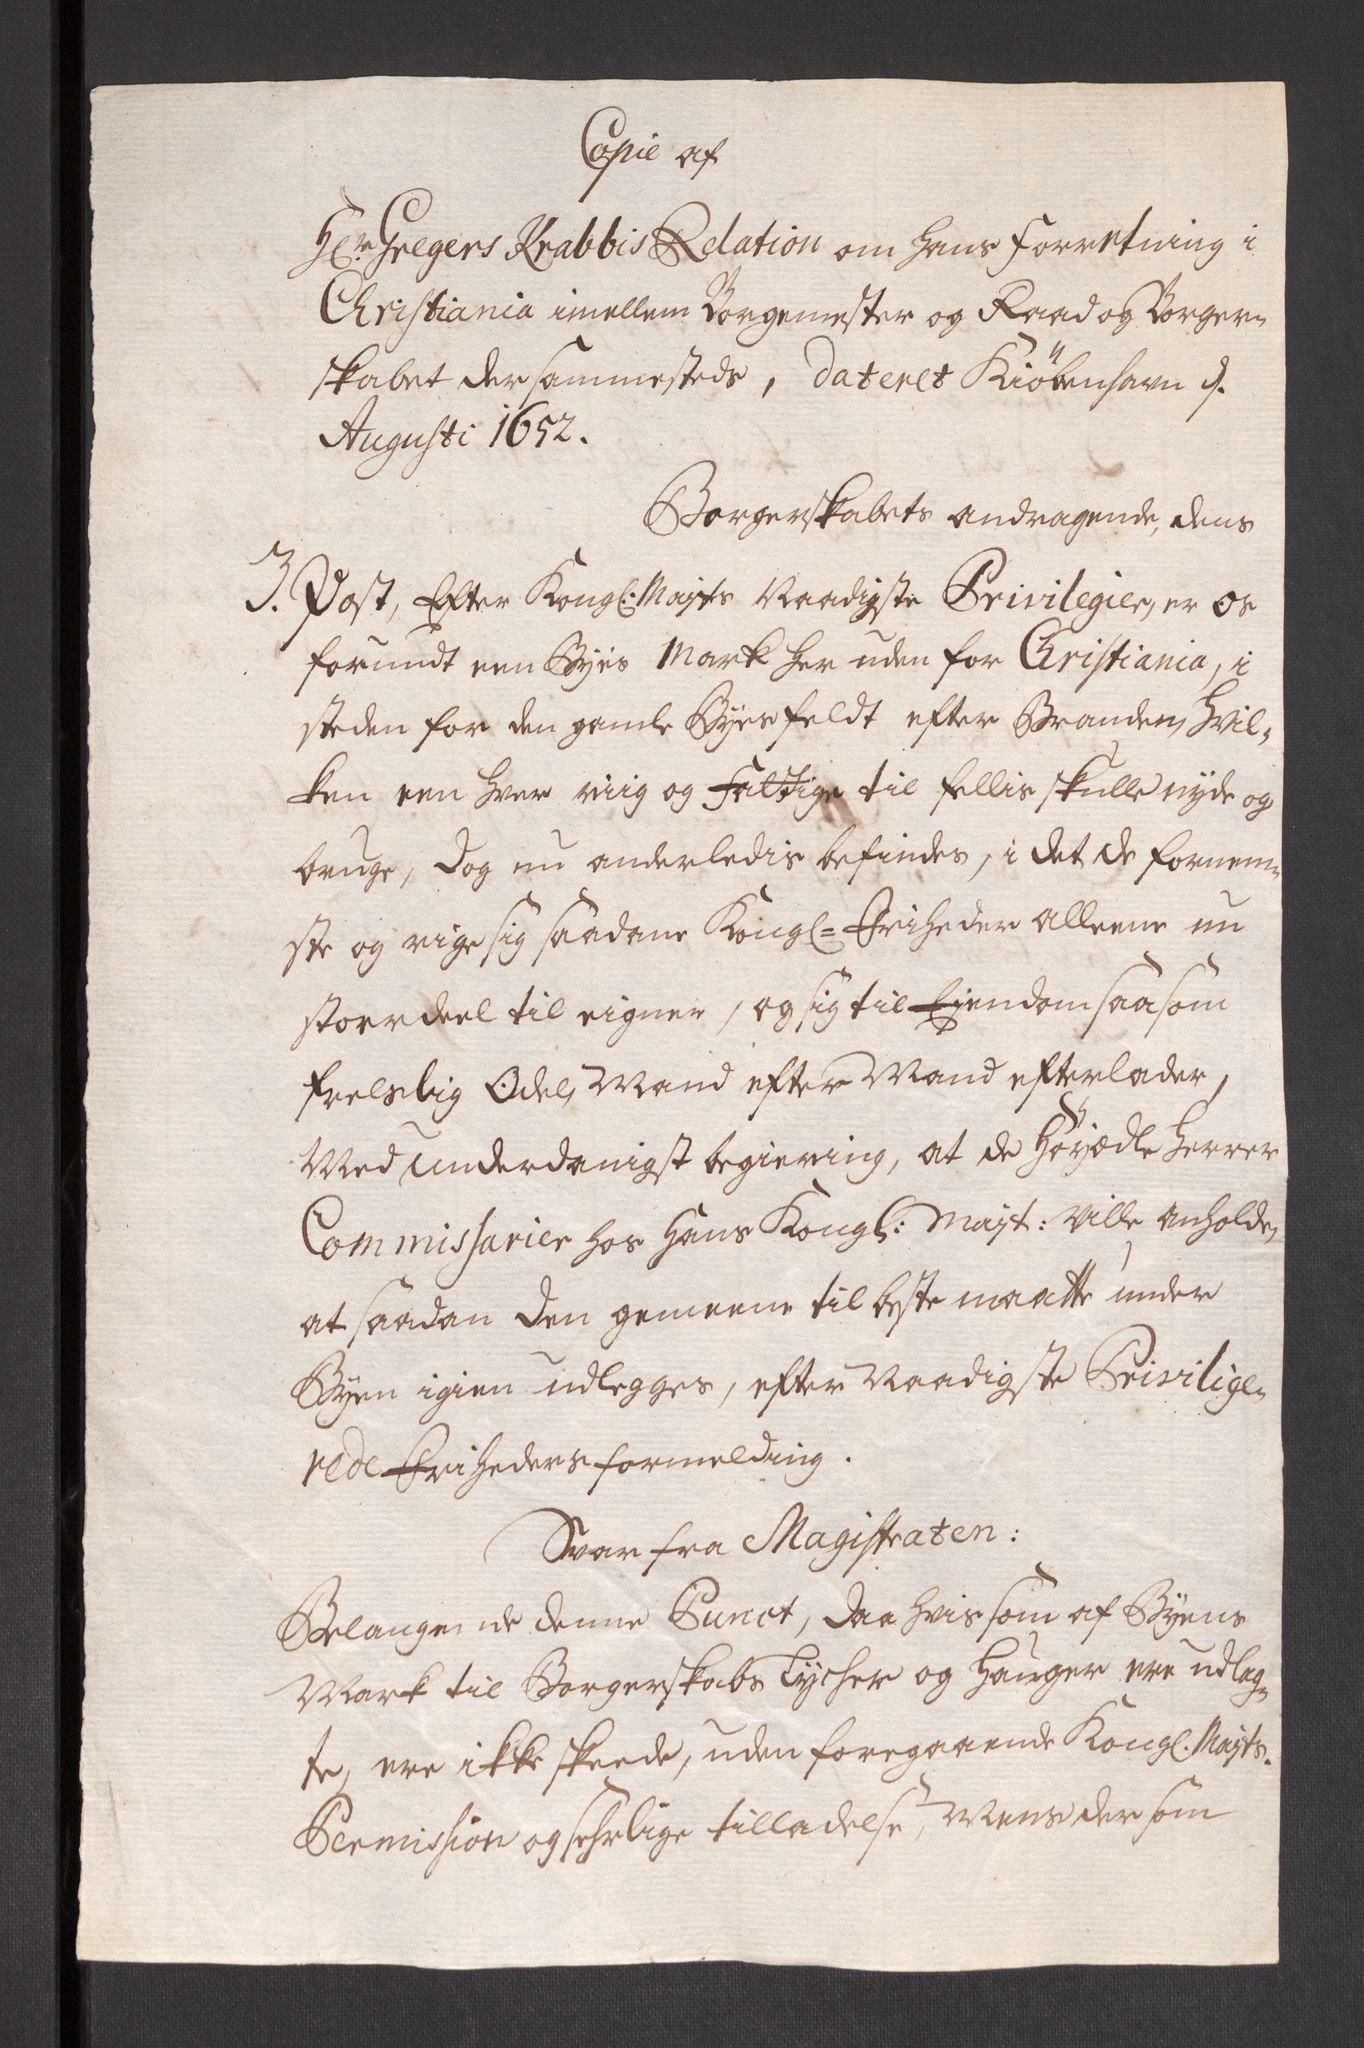 Copie af
Hr. Gregers Krabbis Relation om hans forretning i
Christiania imellem Borgemester og Raad og Borger-
skabet dersammesteds, dateret Kiöbenhavn d.
Augusti 1652.
Borgerskabets andragende, dens
3. Post, Efter Kongl: Mayts Naadigste Privilegier, er os
forundt een Byes Mark her uden for Christiania, i
steden for den gamle Byesfeldt efter Branden, hvil-
ken een hver riig og Fattige til fellis skulle nyde og
bruge, dog nu anderledis befindes, i det de fornem-
ste og rige sig saadane Kongl= Friheder alleene nu
stoerdeel til eigner, og sig til Eiendom saasom
frelslig Odel, Mand efter Mand efterlader,
Med underdanigst begiering, at de Höyædle Herrer
Commissarier hos Hans Kongl: Mayt: ville anholde,
at saadan den gemeene til beste maatte under
Byen igien udlegges, efter Naadigste Privilige-
rede Friheders formelding.
Svar fra Magistraten:
Belangende denne Punct, daa hvis som af Byens
Mark til Borgerskabs Lycher og Hauger ere udlag-
te, ere ikke skeede, uden foregaaende Kongl. Mayts.
Permission og sehrlige tilladelse, Mens der som